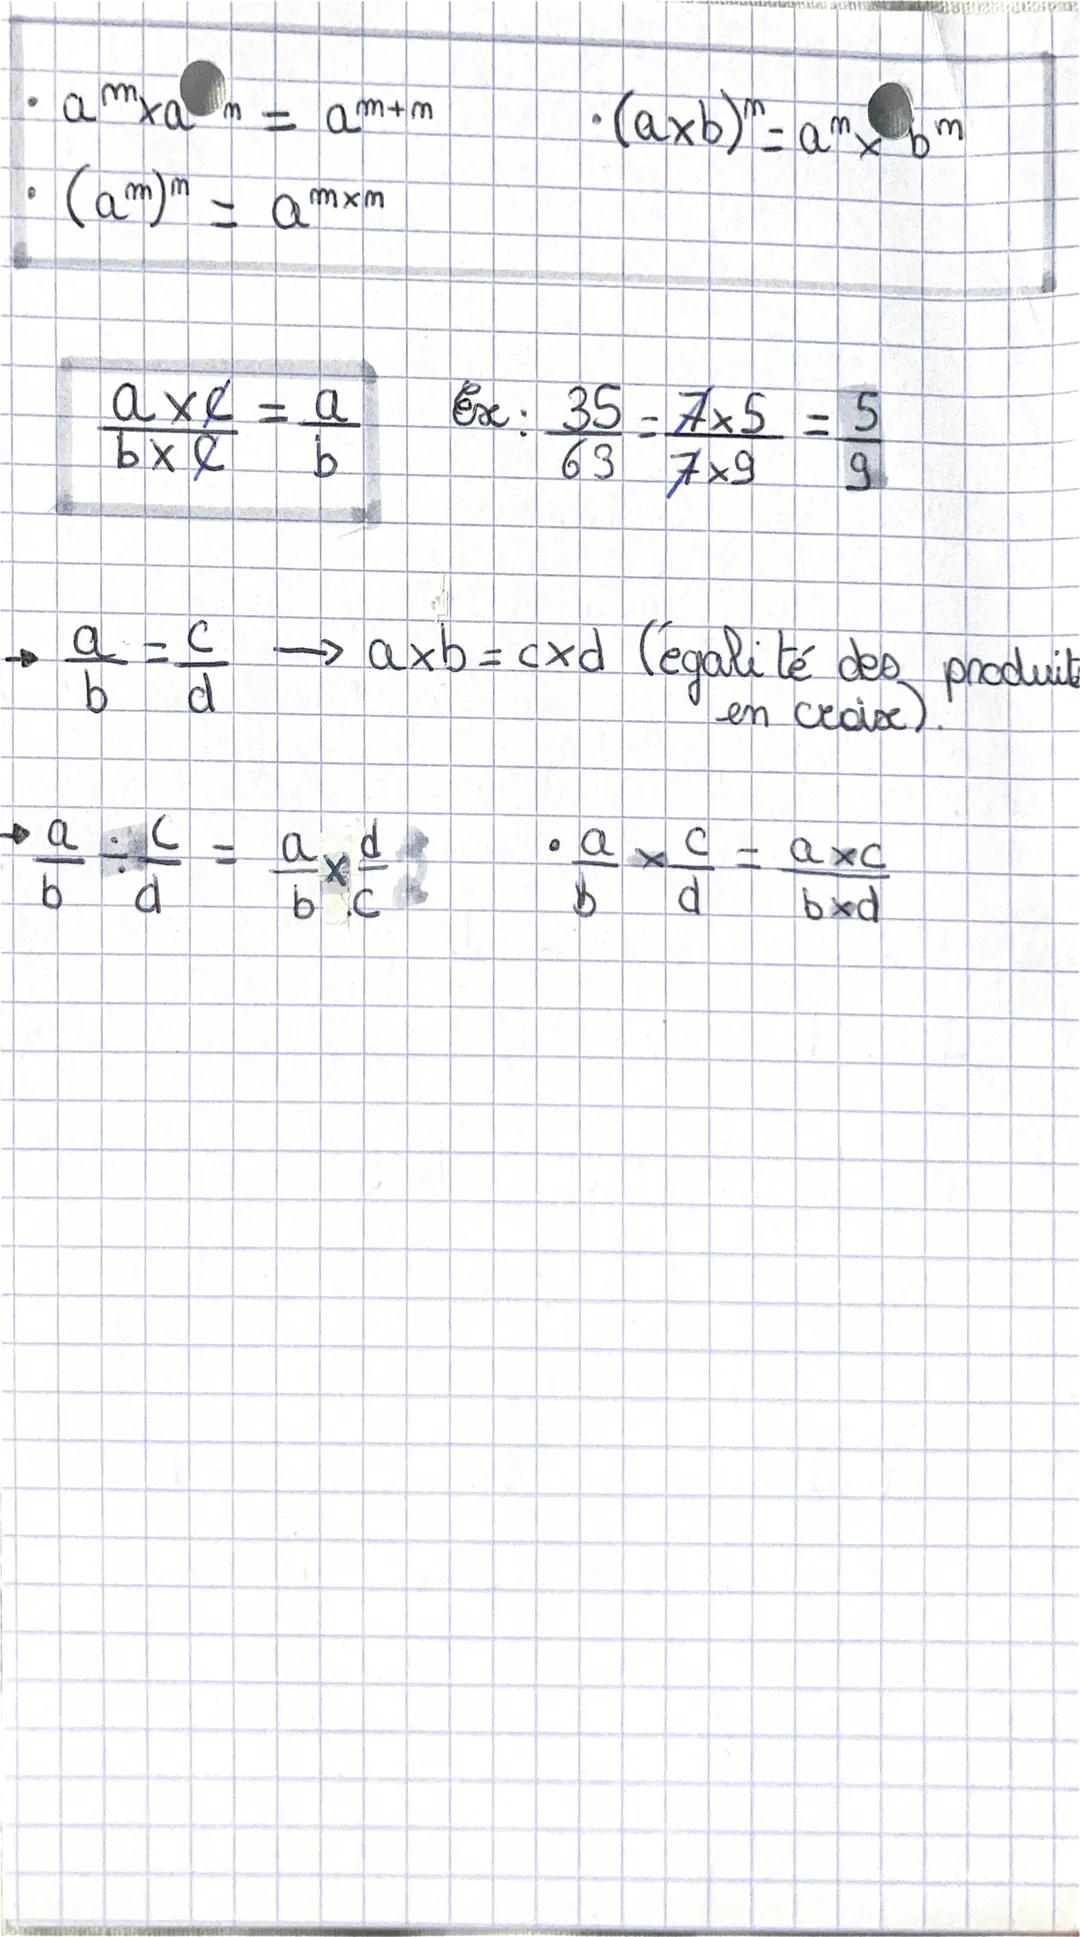 · a^m × a^n = a^(m+n)    · (a×b)^n = a^n × b^n
· (a^m)^n = a^(m×n)
(a×c)/(b×c) = a/b    Ex: 35/63 = (7×5)/(7×9) = 5/9
→ a/b = c/d → a×b = c×d (égalité des produits
en croix).
→ a/b ÷ c/d = a/b × d/c    · a/b × c/d = (a×c)/(b×d)